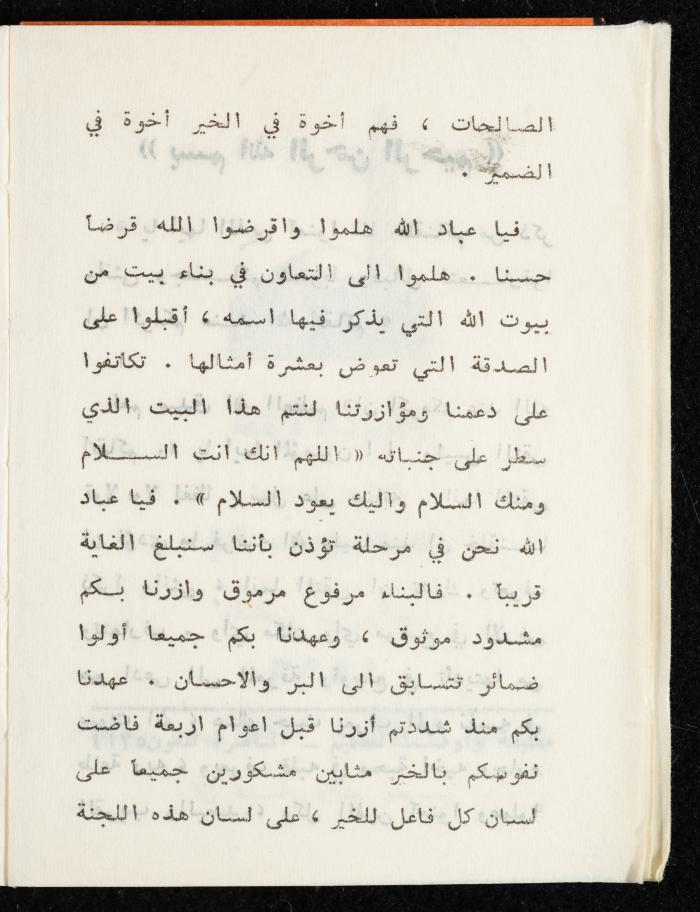 الصالحات ، فهم أخوة في الخير أخوة في
الضمير .
فيا عباد الله هلموا واقرضوا الله قرضاً
حسنا . هلموا الى التعاون في بناء بيت من
بيوت الله التي يذكر فيها اسمه ، أقبلوا على
الصدقة التي تعوض بعشرة أمثالها . تكاتفوا
على دعمنا ومؤازرتنا لنتم هذا البيت الذي
سطر على جنباته « اللهم انك انت الســـلام
ومنك السلام واليك يعود السلام » . فيا عباد
الله نحن في مرحلة تؤذن بأننا سنبلغ الغاية
قريباً . فالبناء مرفوع مرموق وازرنا بــكم
مشدود موثوق ، وعهدنا بكم جميعا أولوا
ضمائر تتسابق الى البر والاحسان . عهدنا
بكم منذ شددتم أزرنا قبل اعوام اربعة فاضت
نفوسكم بالخير مثابين مشكورين جميعاً على
لسان كل فاعل للخير ، على لسان هذه اللجنة